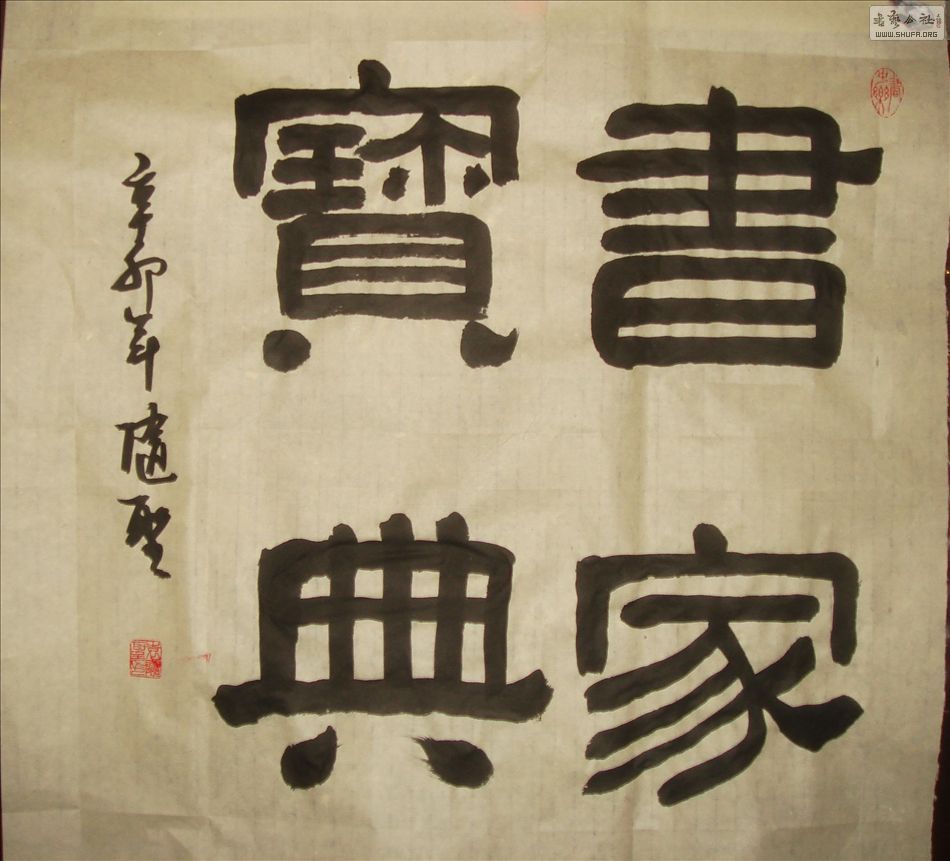 書家
寶典
辛卯年隨聖
書藝公社
WWW.SHUFA.ORG